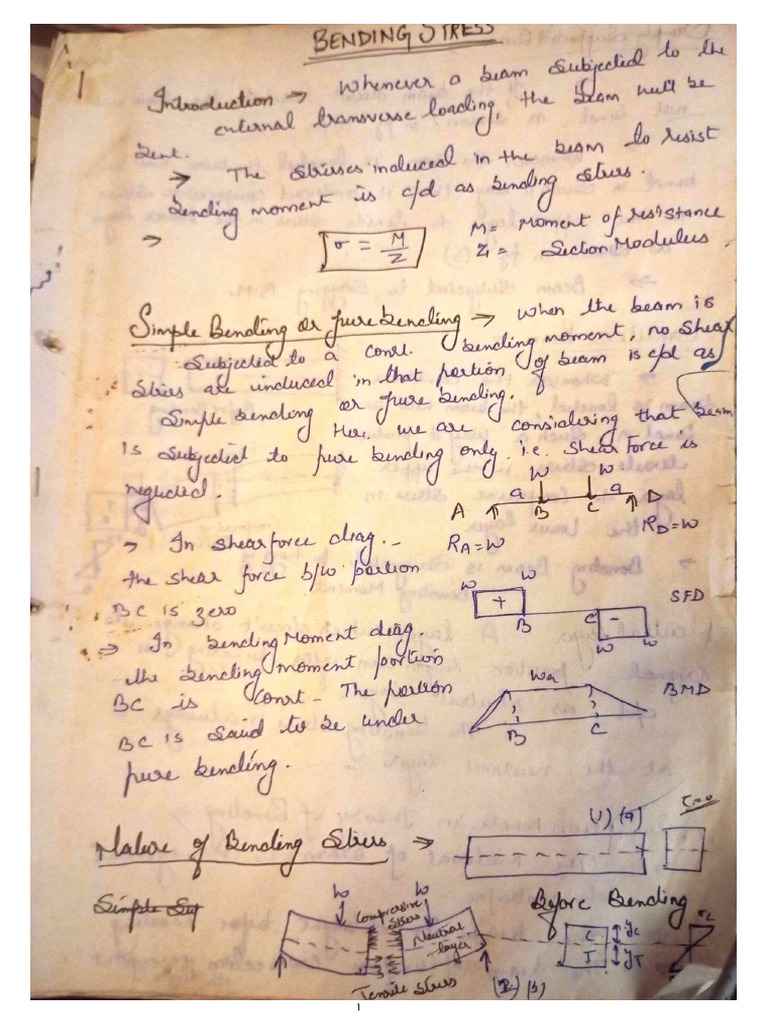 BENDING STRESS
1
Introduction → Whenever a beam subjected to the
external transverse loading, the beam will be
bent.
→ The stresses induced in the beam to resist
bending moment is c/d as bending stress.
→ σ = M/Z M = Moment of resistance
Z = Section Modulus.
Simple Bending or pure bending → When the beam is
subjected to a const. bending moment, no shear
stress are induced in that portion of beam is c/d as
simple bending or pure bending.
Here we are considering that beam
is subjected to pure bending only. i.e. shear force is
neglected.
W W
a a
A B C D
RA=W RD=W
→ In shear force diag. -
the shear force b/w portion
BC is zero
W W SFD
+ B C -
W W
→ In bending Moment diag.
the bending moment portion
BC is const - The portion
BC is said to be under
pure bending.
Wa BMD
B C
Nature of Bending Stress →
(1) (a)
Before Bending
Simple
W W
Compressive
stress
Neutral
layer
Tensile stress
C yc
T yT
(b)
1